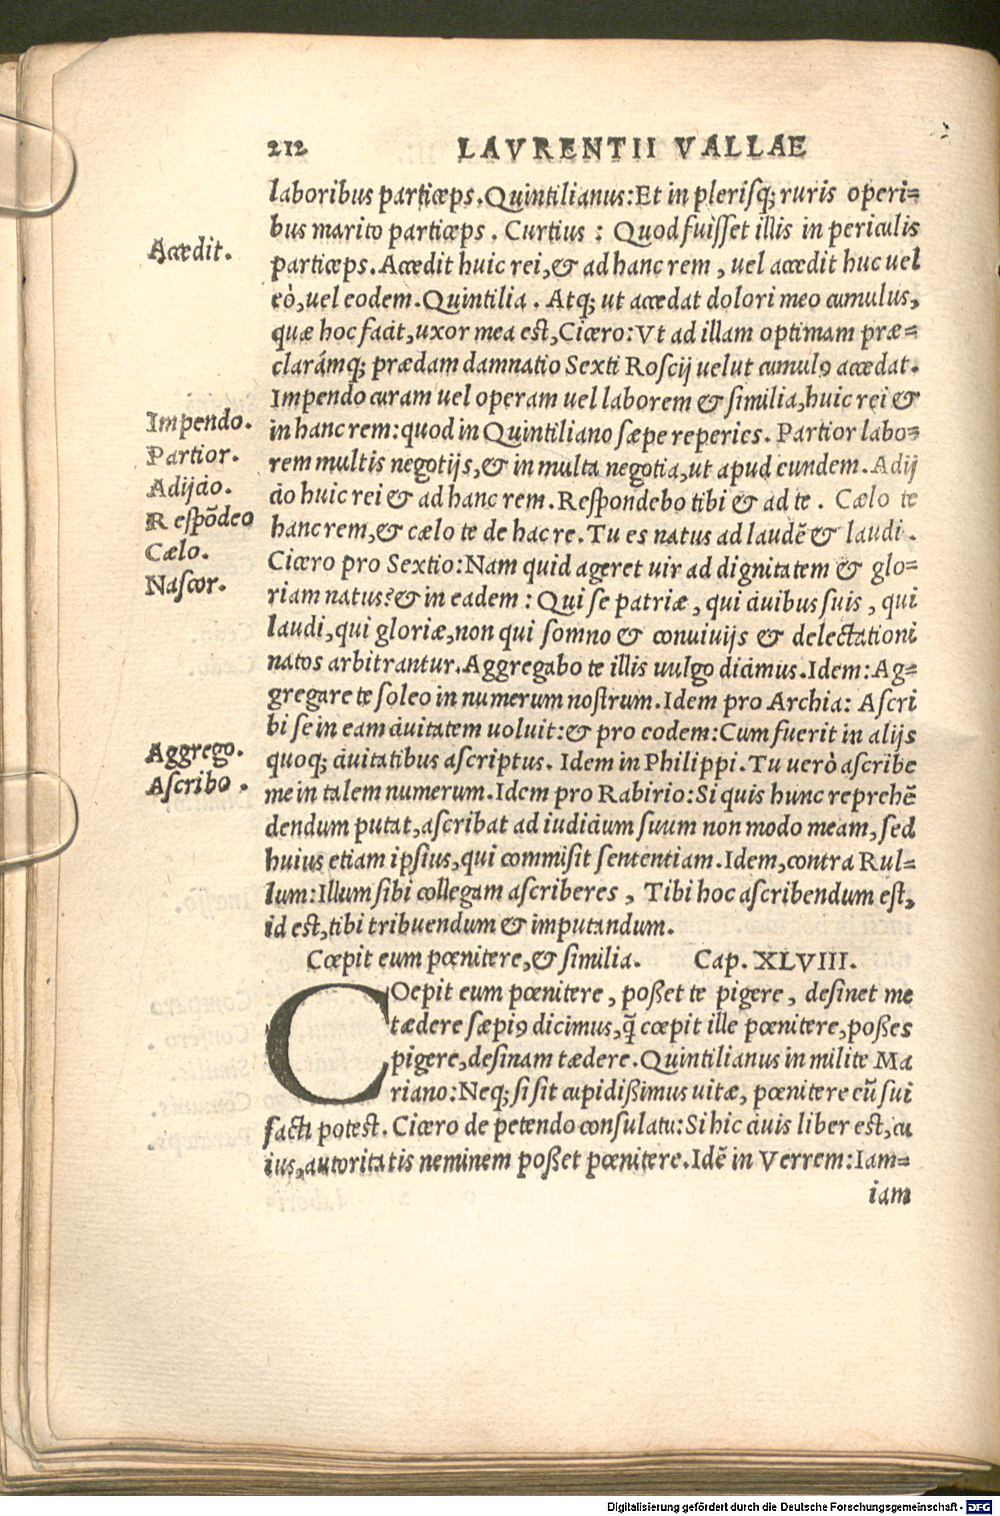 212 LAVRENTII VALLAE
laboribus particeps. Quintilianus: Et in plerisq; ruris operi=
bus marito particeps. Curtius: Quod fuisset illis in periculis
Accedit.
particeps. Accedit huic rei, & ad hanc rem, uel accedit huc uel
eò, uel eodem. Quintilia. Atq; ut accedat dolori meo cumulus,
quæ hoc facit, uxor mea est, Cicero: Vt ad illam optimam præ=
clarámq; prædam damnatio Sexti Roscij uelut cumulꝰ accedat.
Impendo curam uel operam uel laborem & similia, huic rei &
Impendo.
in hanc rem: quod in Quintiliano sæpe reperies. Partior labo=
Partior.
rem multis negotijs, & in multa negotia, ut apud eundem. Adij
Adijcio.
cio huic rei & ad hanc rem. Respondebo tibi & ad te. Cælo te
Respõdeo
hanc rem, & cælo te de hac re. Tu es natus ad laudẽ & laudi.
Cælo.
Cicero pro Sextio: Nam quid ageret uir ad dignitatem & glo=
Nascor.
riam natus? & in eadem: Qui se patriæ, qui ciuibus suis, qui
laudi, qui gloriæ, non qui somno & conuiuijs & delectationi
natos arbitrantur. Aggregabo te illis uulgo dicimus. Idem: Ag=
gregare te soleo in numerum nostrum. Idem pro Archia: Ascri
bi se in eam ciuitatem uoluit: & pro eodem: Cum fuerit in alijs
Aggrego.
quoq; ciuitatibus ascriptus. Idem in Philippi. Tu uerò ascribe
Ascribo.
me in talem numerum. Idem pro Rabirio: Si quis hunc reprehẽ
dendum putat, ascribat ad iudicium suum non modo meam, sed
huius etiam ipsius, qui commisit sententiam. Idem, contra Rul=
lum: Illum sibi collegam ascriberes, Tibi hoc ascribendum est,
id est, tibi tribuendum & imputandum.
Cœpit eum pœnitere, & similia. Cap. XLVIII.
COepit eum pœnitere, poßet te pigere, desinet me
tædere sæpiꝰ dicimus, q̃ cœpit ille pœnitere, poßes
pigere, desinam tædere. Quintilianus in milite Ma
riano: Neq; si sit cupidißimus uitæ, pœnitere eũ sui
facti potest. Cicero de petendo consulatu: Si hic ciuis liber est, cu
ius, autoritatis neminem poßet pœnitere. Idẽ in Verrem: Iam=
iam
Digitalisierung gefördert durch die Deutsche Forschungsgemeinschaft - DFG